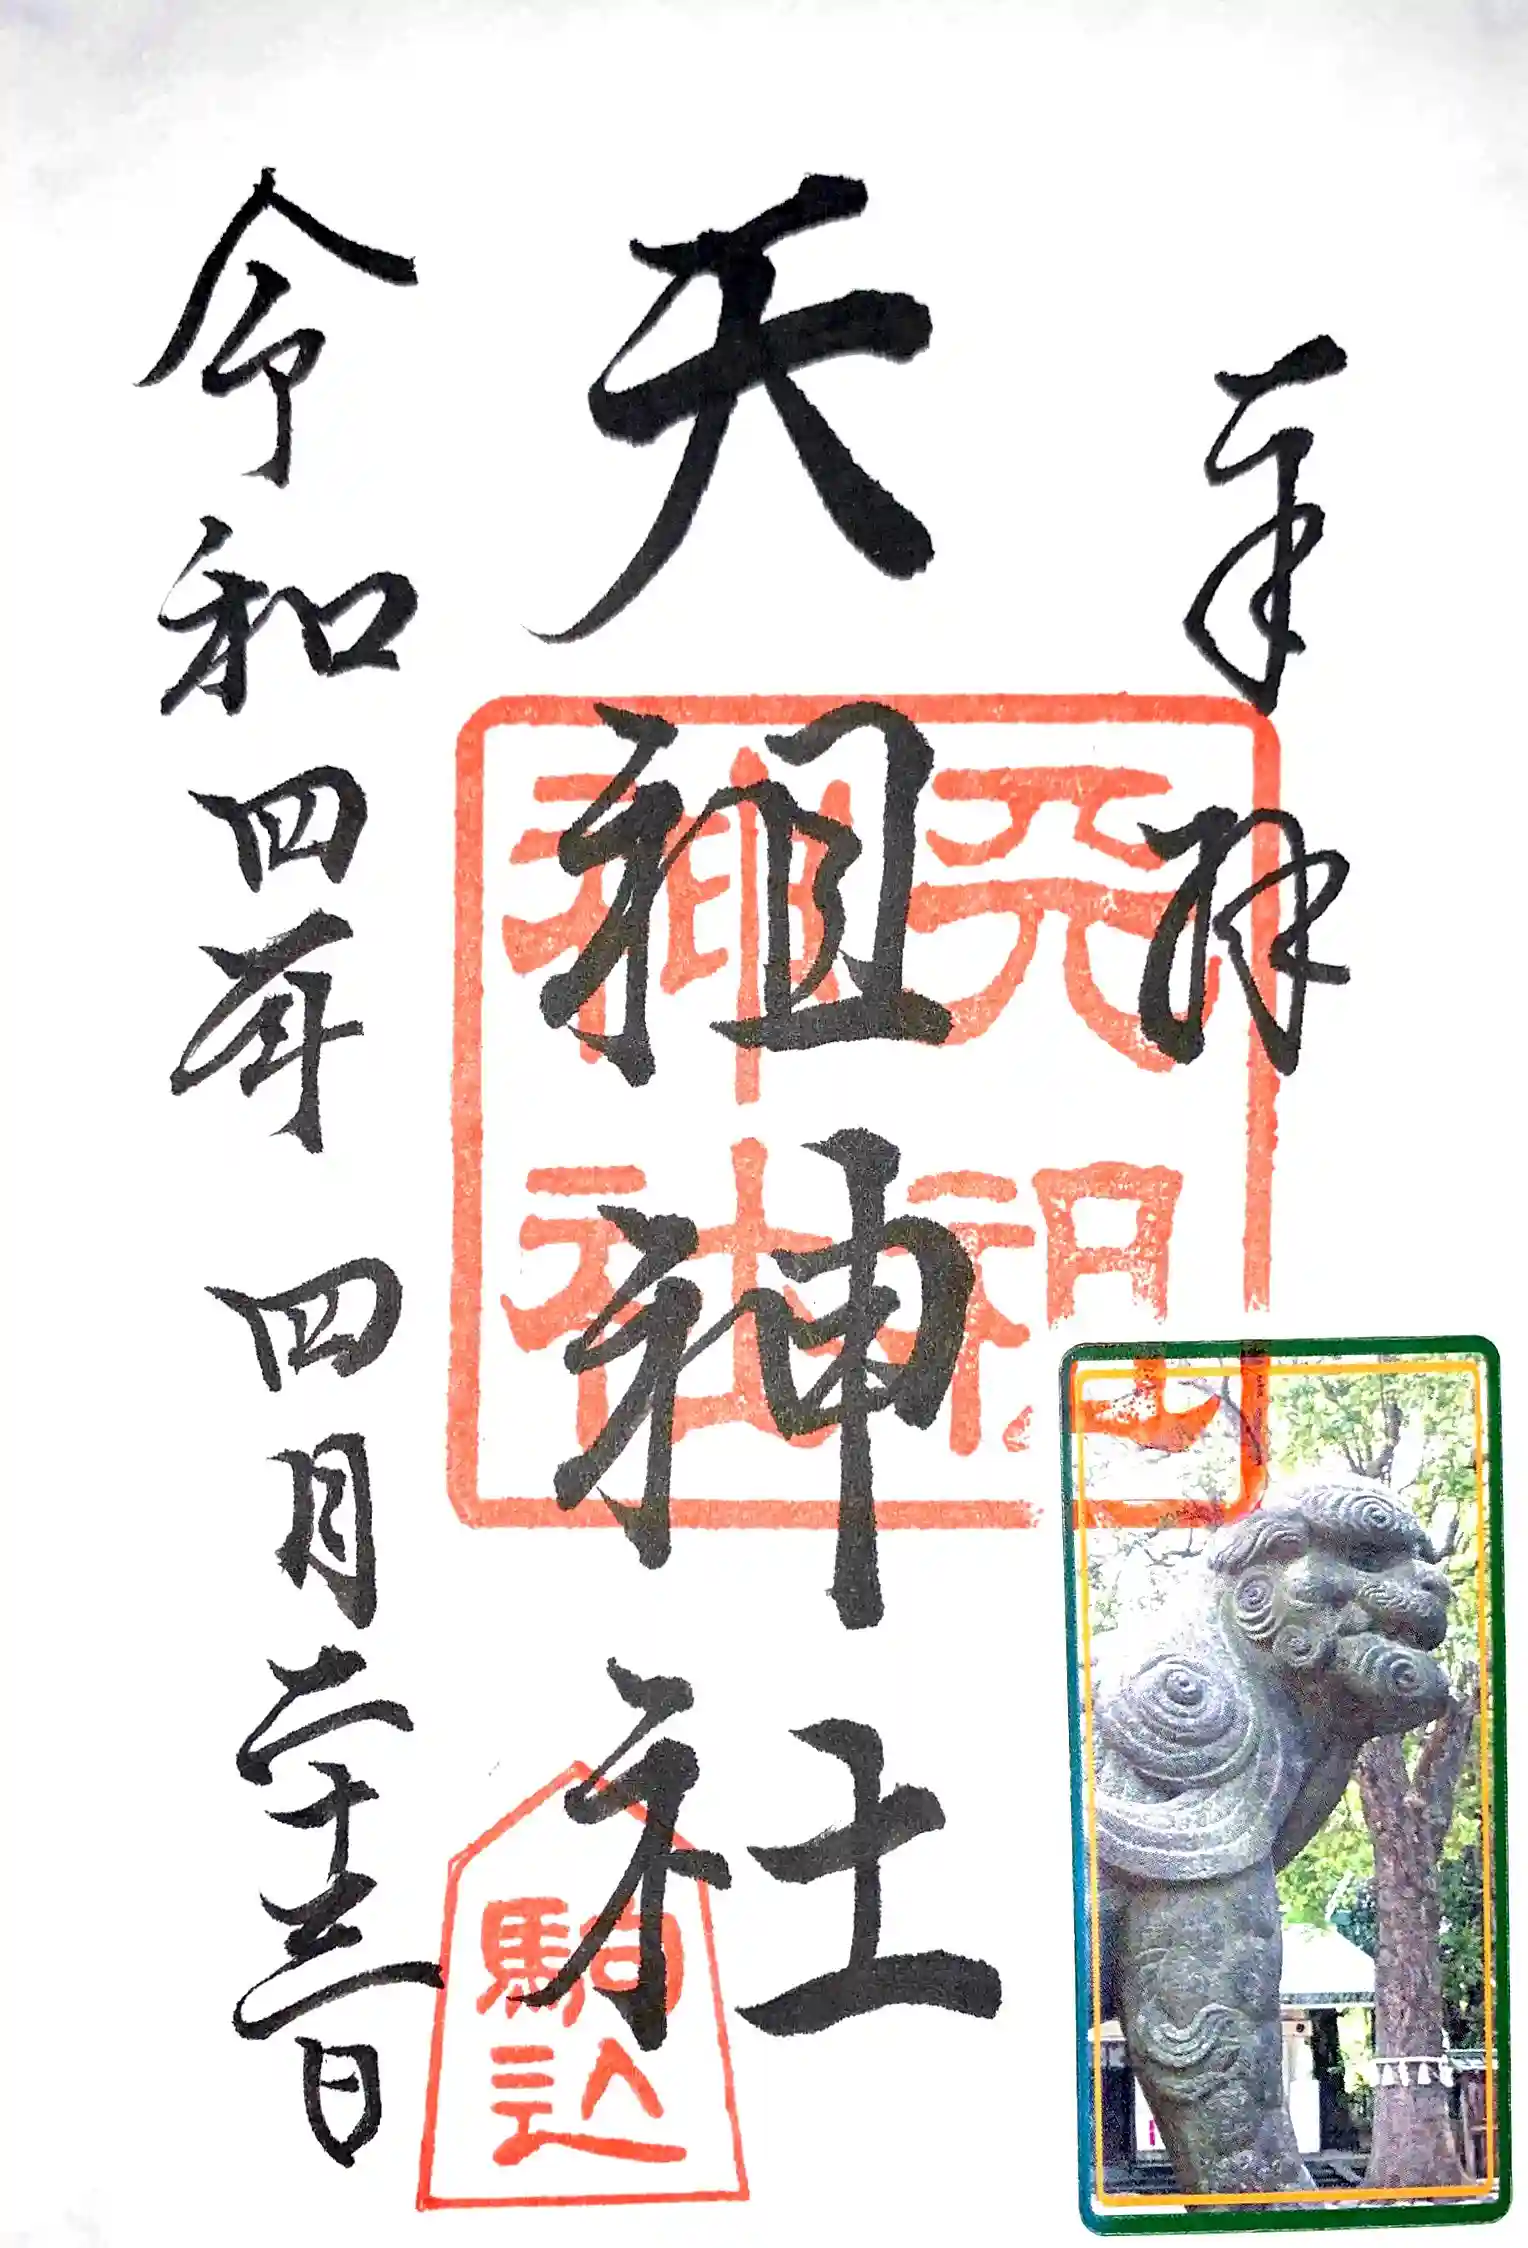 奉拝
天祖神社
令和四年四月二十三日
天祖
神社
駒込